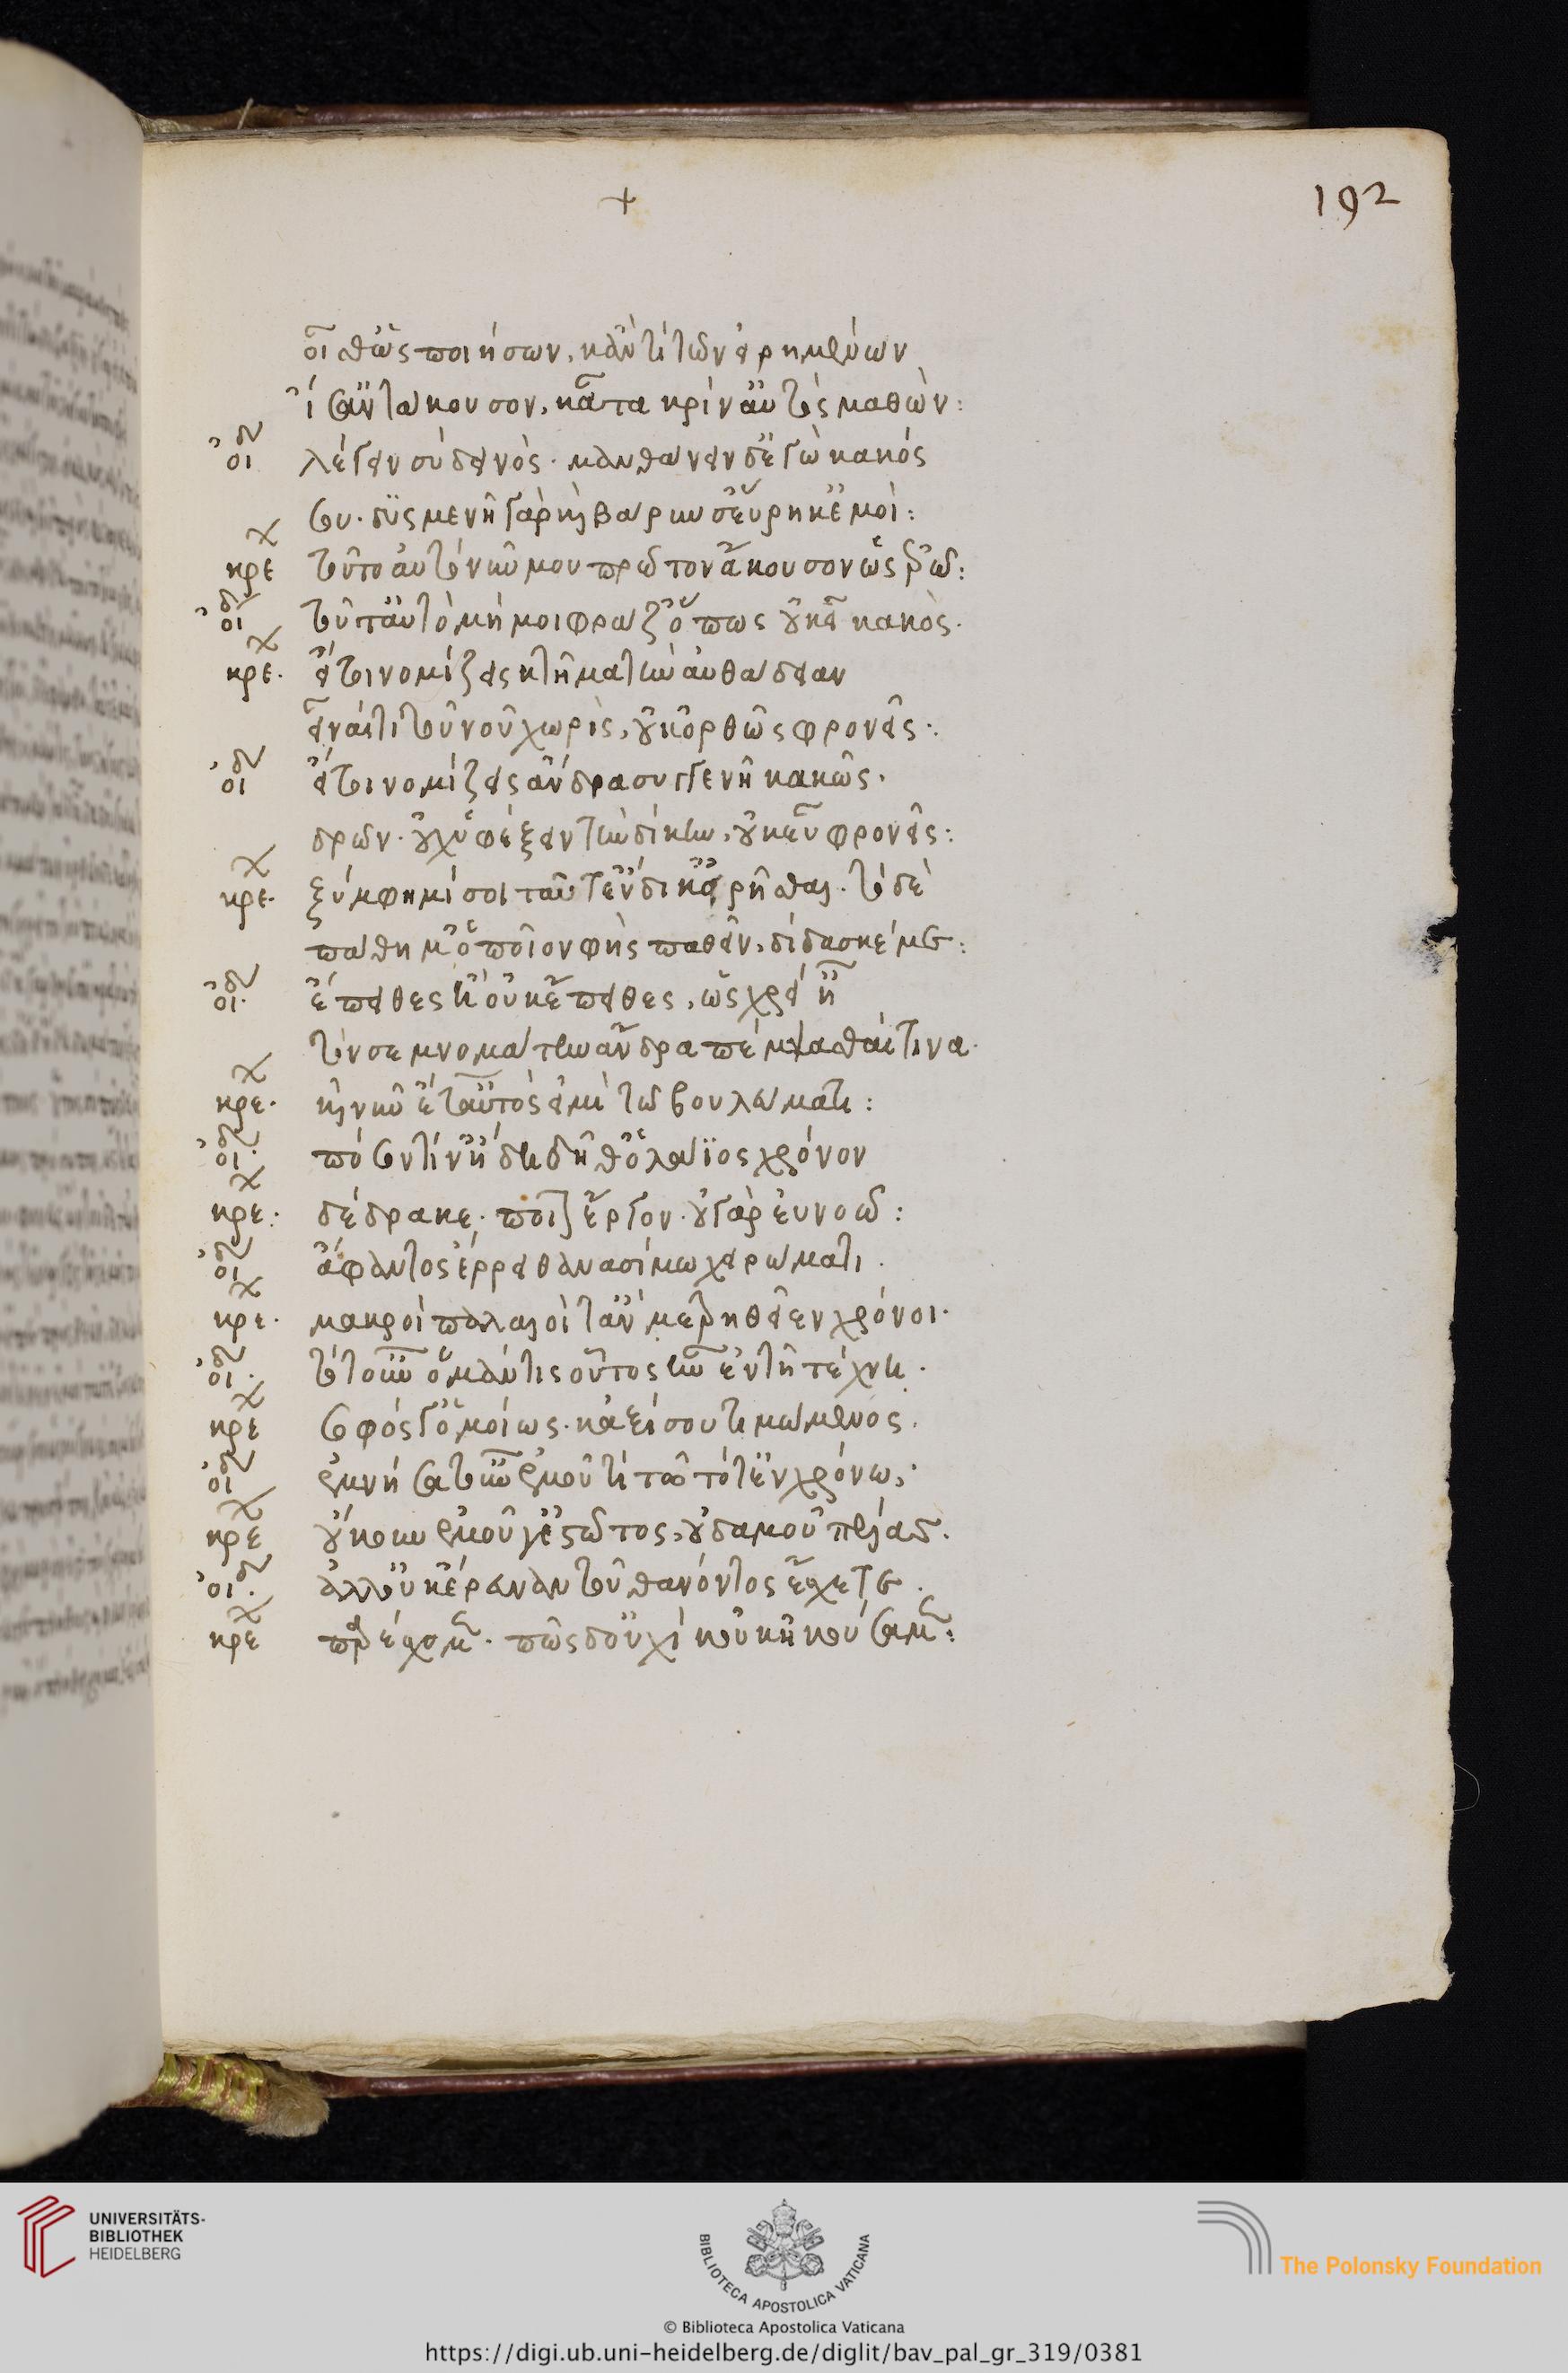 +
192
οἶσθ' ὡς ποίησων, κἀντὶ τῶν εἰρημένων
ἴσ' ἀντάκουσον, κᾆτα κρῖν' αὐτὸς μαθών:
οἰδ λέγειν σὺ δεινὸς· μανθάνειν δ' ἐγὼ κακός
σου. δυσμενῆ γὰρ καὶ βαρύν σ' εὕρηκ' ἐμοί:
κρε τοῦτ' αὐτὸ νῦν μου πρῶτον ἄκουσον ὡς ἐρῶ:
οἰδ τοῦτ' αὐτὸ μή μοι φράζ' ὅπως οὐκ εἶ κακὸς.
κρε. εἴ τοι νομίζεις κτῆμα τὴν αὐθάδειαν
εἶναί τι τοῦ νοῦ χωρὶς, οὐκ ὀρθῶς φρονεῖς:
οἰδ εἴ τοι νομίζεις ἄνδρα συγγενῆ κακῶς.
δρῶν· οὐχ ὑφέξειν τὴν δίκην, οὐκ εὖ φρονεῖς:
κρε. ξύμφημί σοι ταῦτ' ἔνδικ' εἰρῆσθαι. τὸ δὲ
πάθημ' ὁποῖον φὴς παθεῖν, δίδασκέ με:
οἰδ. ἔπειθες ἢ οὐκ ἔπειθες, ὡς χρεί' ἢ
τὸν σεμνόμαντιν ἄνδρα πέμψασθαί τινα.
κρε. καὶ νῦν ἔτ' αὑτός εἰμι τῷ βουλεύματι:
οἰδ. πόσον τίν' ἤδη δῆθ' ὁ λάϊος χρόνον
κρε: δέδρακε. ποῖον ἔργον. οὐ γὰρ ἐννοῶ:
οἰδ ἄφαντος ἔρρει θανασίμῳ χειρώματι.
κρε. μακροὶ παλαιοί τ' ἂν μετρηθεῖεν χρόνοι.
οἰδ. τότ' οὖν ὁ μάντις οὗτος ἦν ἐν τῇ τέχνῃ.
κρε σοφός γ' ὁμοίως. κἀξ ἴσου τιμώμενος.
οἰδ ἐμνήσατ' οὖν ἐμοῦ τί τῷ τότ' ἐν χρόνῳ;
κρε οὔκουν ἐμοῦ γ' ἑστῶτος, οὐδαμοῦ πέλας.
οἰδ. ἀλλ' οὐκ ἔρευναν τοῦ θανόντος ἔσχετε.
κρε παρέσχομεν. πῶς δ' οὐχί κοὐκ ἠκούσαμεν:
UNIVERSITÄTS-
BIBLIOTHEK
HEIDELBERG
BIBLIOTECA APOSTOLICA VATICANA
The Polonsky Foundation
© Biblioteca Apostolica Vaticana
https://digi.ub.uni-heidelberg.de/diglit/bav_pal_gr_319/0381